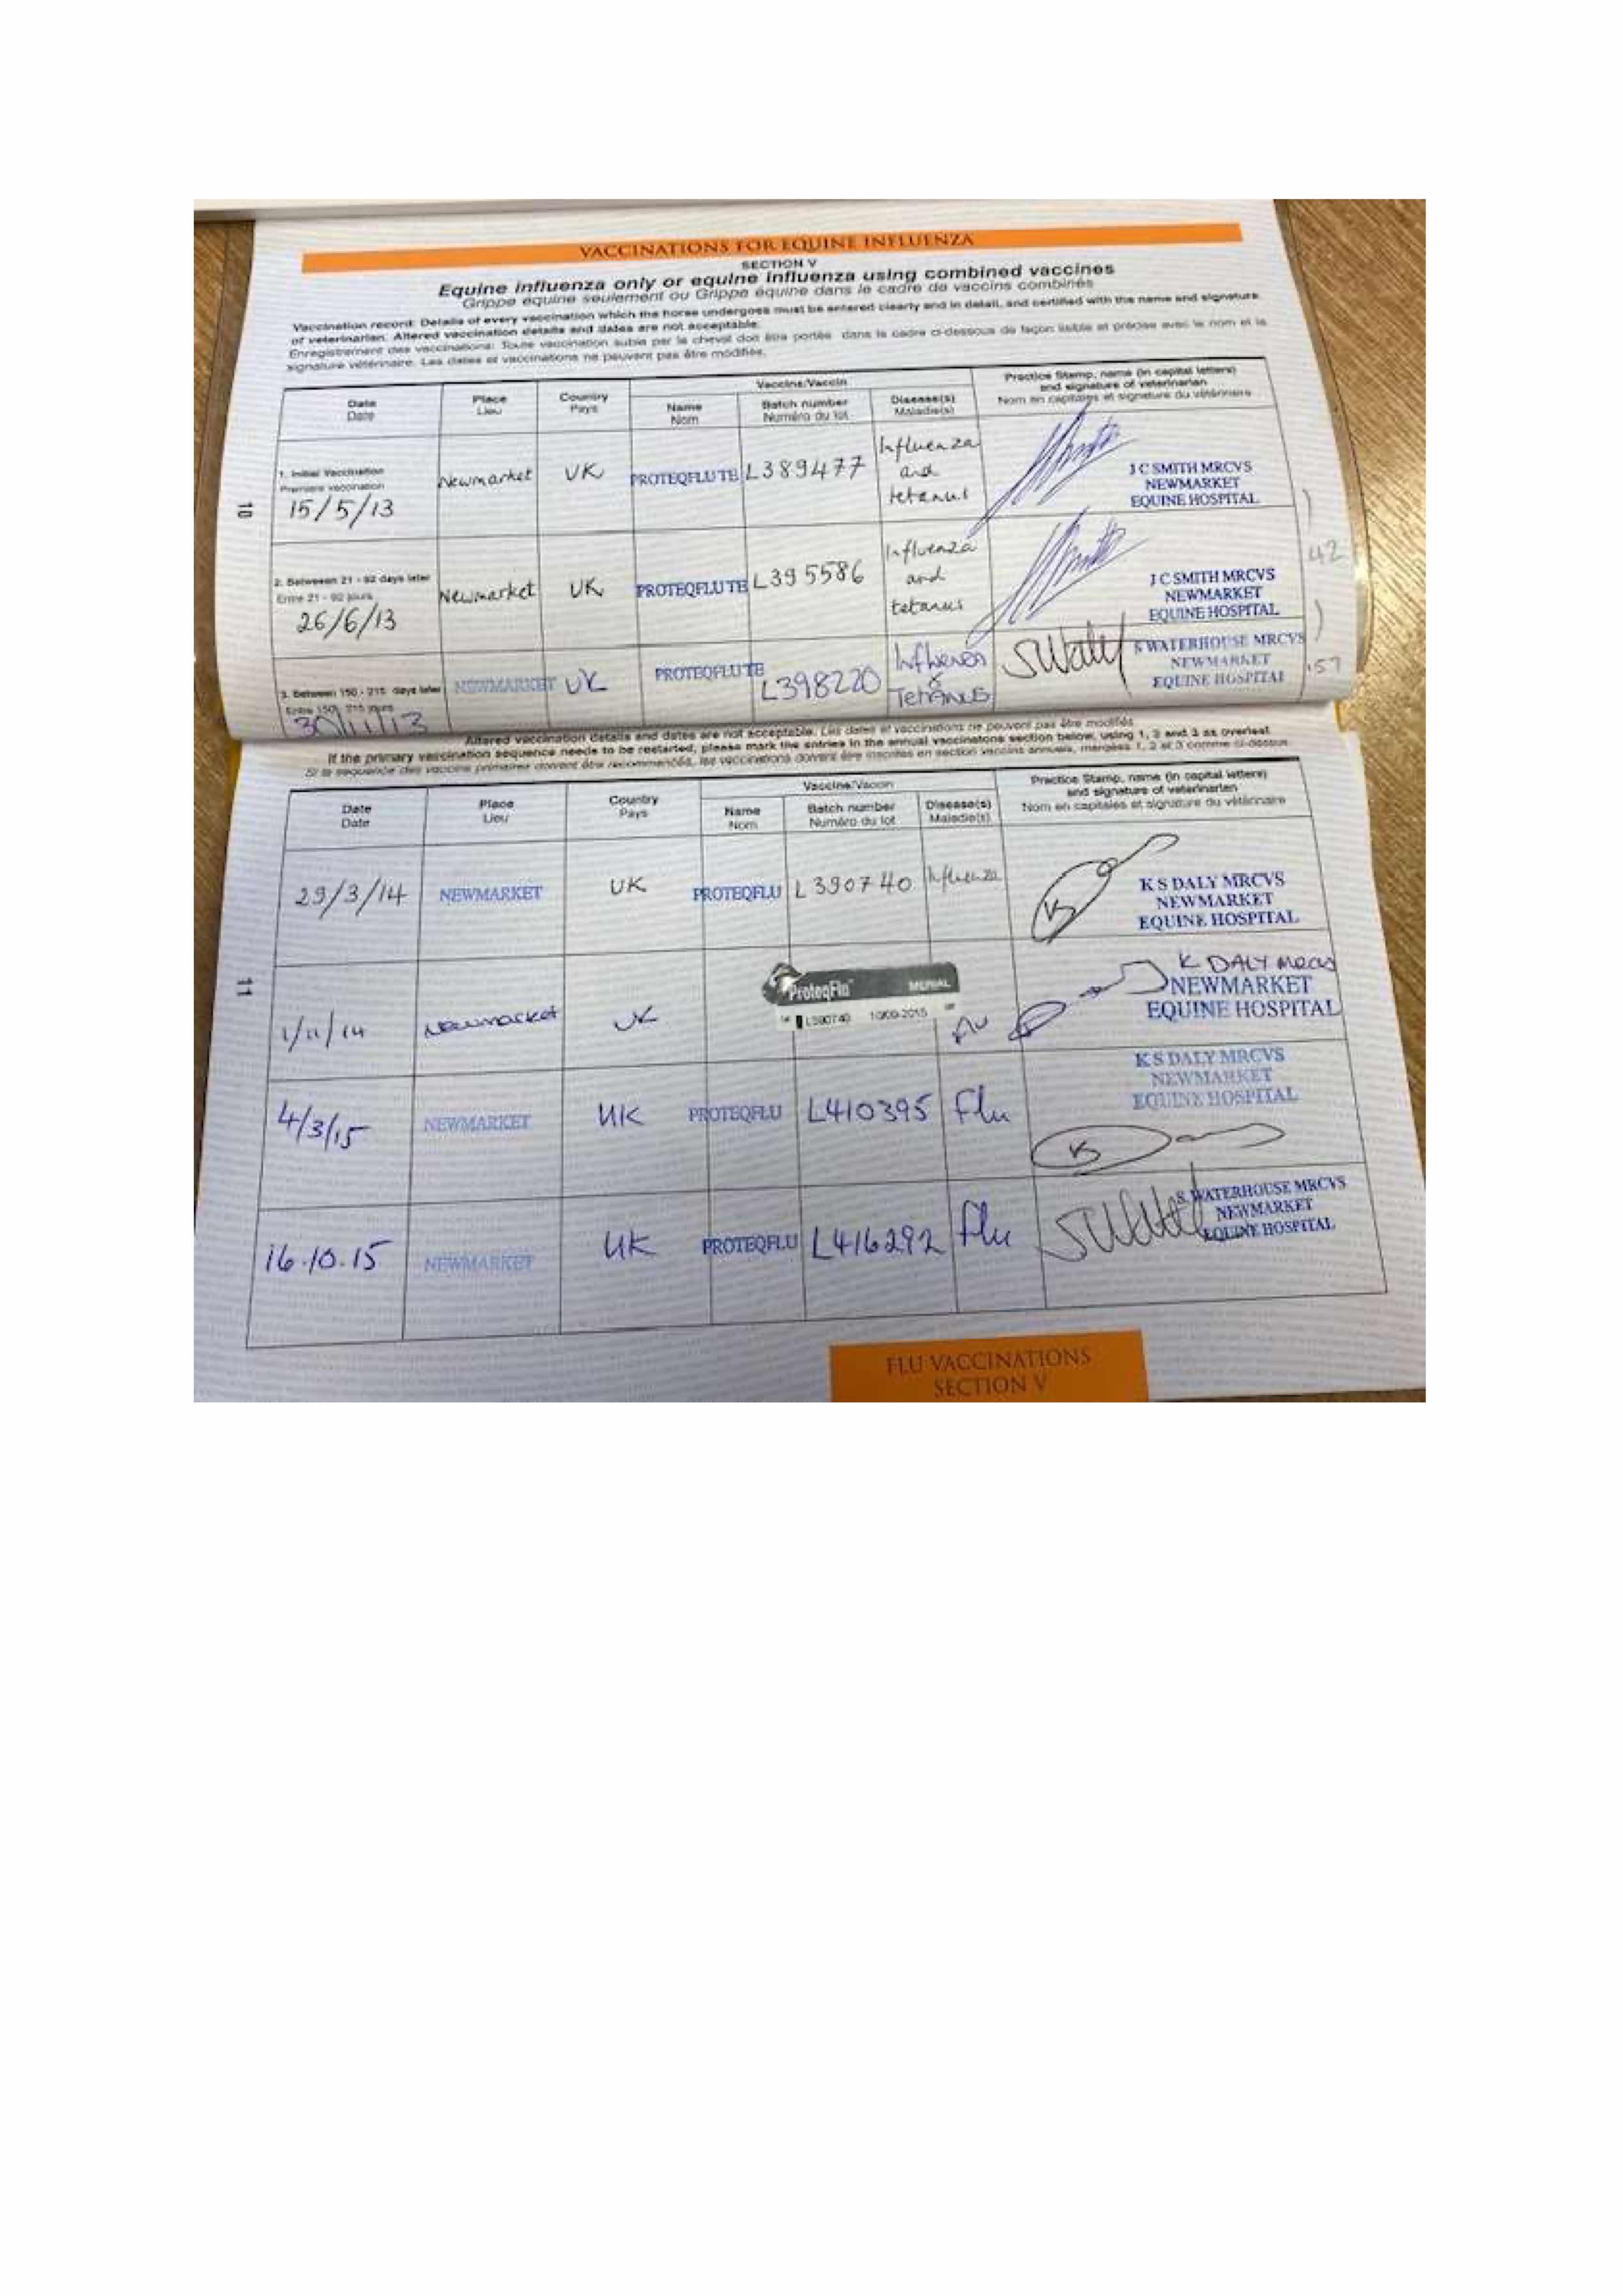 VACCINATIONS FOR EQUINE INFLUENZA
SECTION V
Equine influenza only or equine influenza using combined vaccines
Grippe équine seulement ou Grippe équine dans le cadre de vaccins combinés
Vaccination record: Details of every vaccination which the horse undergoes must be entered clearly and in detail, and certified with the name and signature
of veterinarian. Altered vaccination details and dates are not acceptable.
Enregistrement des vaccinations: Toute vaccination subie par le cheval doit être portée dans le cadre ci-dessous de façon lisible et précise avec le nom et la
signature vétérinaire. Les dates et vaccinations ne peuvent pas être modifiés.
Date
Date
Place
Lieu
Country
Pays
Vaccine/Vaccin
Name
Nom
Batch number
Numéro du lot
Disease(s)
Maladie(s)
Practice Stamp, name (in capital letters)
and signature of veterinarian
Nom en capitales et signature du vétérinaire
10
1. Initial Vaccination
Première vaccination
15/5/13
Newmarket
UK
PROTEQFLU TE
L389477
Influenza
and
tetanus
J C SMITH MRCVS
NEWMARKET
EQUINE HOSPITAL
2. Between 21 - 92 days later
Entre 21 - 92 jours
26/6/13
Newmarket
UK
PROTEQFLU TE
L395586
Influenza
and
tetanus
J C SMITH MRCVS
NEWMARKET
EQUINE HOSPITAL
42
3. Between 150 - 215 days later
Entre 150 - 215 jours
30/11/13
NEWMARKET
UK
PROTEQFLU TE
L398220
Influenza
&
TETANUS
S WATERHOUSE MRCVS
NEWMARKET
EQUINE HOSPITAL
157
Altered vaccination details and dates are not acceptable. Les dates et vaccinations ne peuvent pas être modifiés
If the primary vaccination sequence needs to be restarted, please mark the entries in the annual vaccinations section below, using 1, 2 and 3 as overleaf.
Si la séquence des vaccins primaires doivent être recommencées, les vaccinations doivent être inscrites en section vaccins annuels, marquées 1, 2 et 3 comme ci-dessus
Date
Date
Place
Lieu
Country
Pays
Vaccine/Vaccin
Name
Nom
Batch number
Numéro du lot
Disease(s)
Maladie(s)
Practice Stamp, name (in capital letters)
and signature of veterinarian
Nom en capitales et signature du vétérinaire
29/3/14
NEWMARKET
UK
PROTEQFLU
L390740
Influenza
K S DALY MRCVS
NEWMARKET
EQUINE HOSPITAL
11
1/11/14
Newmarket
UK
ProteqFlu
MERIAL
L390740
10-09-2015
Flu
K DALY MRCVS
NEWMARKET
EQUINE HOSPITAL
4/3/15
NEWMARKET
UK
PROTEQFLU
L410395
Flu
K S DALY MRCVS
NEWMARKET
EQUINE HOSPITAL
16.10.15
NEWMARKET
UK
PROTEQFLU
L416292
Flu
S. WATERHOUSE MRCVS
NEWMARKET
EQUINE HOSPITAL
FLU VACCINATIONS
SECTION V